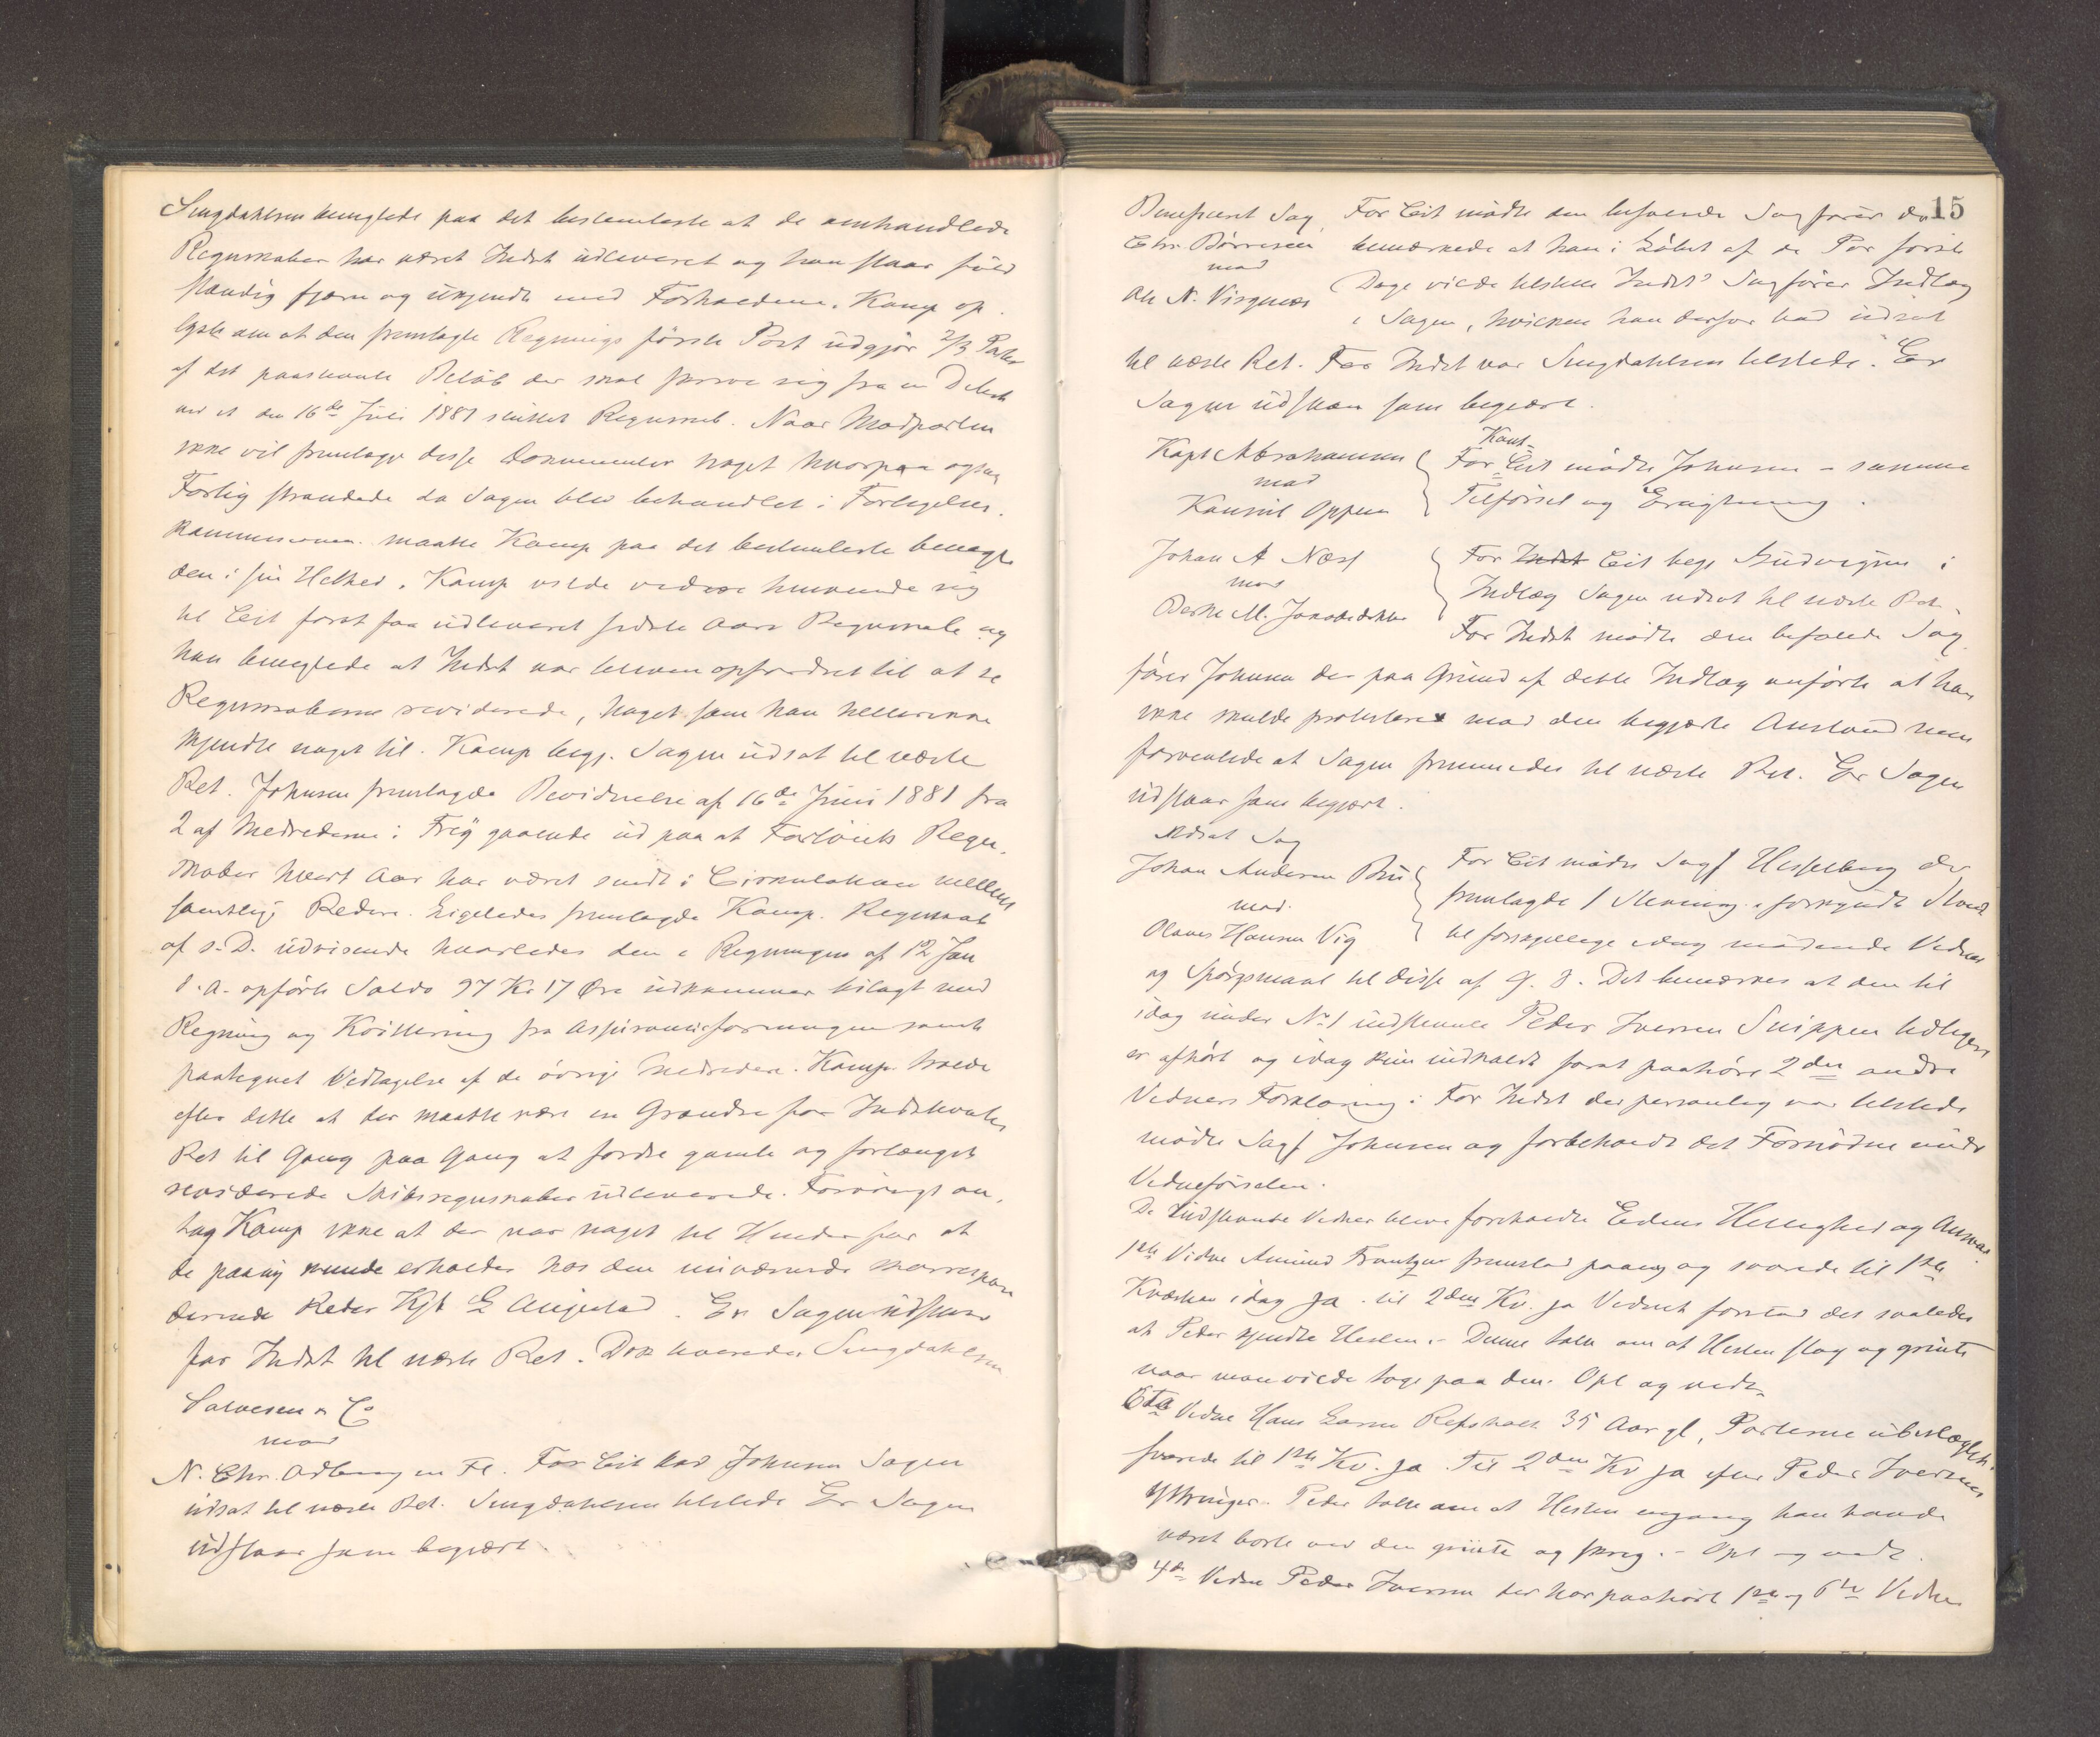 Smgdahlsen benegtede paa det bestemteste at de omhandlede
Regnskaber har været Indst udleveret og han staar fuld
stændig fjern og ukjendt med Forholdene. Kamp op
lyste om at den fremlagte Regnings første Post udgjør 2/3 Parter
af det paastevnte Beløb der skal skrive sig fra en Debet
ved et den 16de Juli 1881 sluttet Regnskab. Naar Modparten
ikke vil fremlægge disse Dokumenter noget hvorpaa ogsaa
Forlig strandede da Sagen blev behandlet i Forligelses
kommissionen maatte Kamp paa det bestemteste benegte
den i sin Helhed. Kamp vilde videre henvende sig
til Cit forat faa udleveret sidste Aars Regnskab og
han benegtede at Indst var bleven opfordret til at se
Regnskaberne reviderede, noget som han heller ikke
kjendte noget til. Kamp begj. Sagen udsat til næste
Ret. Johnsen fremlagde Bevidnelse af 16de Juni 1881 fra
2 af Medrederne i Freÿ gaaende ud paa at Fartöiets Regn
skaber hvert Aar har været sendt i Cirkulation mellem
samtlige Redere. Ligeledes fremlagde Kamp Regnskab
af s. D. udvisende hvorledes den i Regningen af 12 Jan
d. A. opførte Saldo 97 Kr 17 Øre udkommer bilagt med
Regning og Kvittering fra Assuranceforeningen samt
paategnet Vedtagelse af de øvrige Medredere. Kamp troede
efter dette at der maatte være en Grændse for Indstevntes
Ret til Gang paa Gang at fordre gamle og forlængst
reviderede Skibsregnskaber udleverede. Forøvrigt an
tog Kamp ikke at der var noget til Hinder for at
de paany kunde erholdes hos den nuværende korrespon
derende Reder Kjbt E Anjestad. Er Sagen udstaar
for Indst til næste Ret. Dok hvorede Smgdahlsen
Salvesen & Co
mod
N. Chr. Odberg en Fl. For Cit bad Johnsen Sagen
udsat til næste Ret. Smgdahlsen tilstede Er Sagen
udstaar som begjært.
15
Beneficeret Sag, For Cit mødte den befalede Sagfører der
Chr. Börresen bemærkede at han i Løbet af de Par første
mod Dage vilde tilstille Indsts Sagfører Indlæg
Ole N. Visgnæs i Sagen, hvilken han derfor bad udsat
til næste Ret. For Indst var Smgdahlsen tilstede. Er
Sagen udstaar som begjært.
Kapt Abrahamsen Kont-
mod For Cit mødte Johnsen - samme
Konsul Oppen Tilførsel og Eragtning.
Johan A Næss For Indst Cit begj Gudvigsen i
mod Indlæg Sagen udsat til næste Ret.
Berthe M. Jakobsdatter For Indst mødte den befalede Sag
fører Johnsen der paa Grund af dette Indlæg anførte at han
ikke skulde protestere mod den begjærte Anstand men
forventede at Sagen fremmedes til næste Ret. Er Sagen
udstaar som begjært.
Udsat Sag
Johan Andersen Bie For Cit mødte Sagf Hesselberg der
mod fremlagde 1 Stevning forkyndt Stevn.
Olaves Hansen Vig til forskjellige idag mødende Vidner
og Spørgsmaal til disse af G. D. Det bemærkes at den til
idag under No 1 indstevnte Peder Iversen Snippen tidligere
er afhørt og idag kun indkaldt forat paahøre 2den andre
Vidners Forklaring. For Indst der personlig var tilstede
mødte Sagf Johnsen og forbeholdt det Fornødne under
Vidneførselen.
De indstevnte Vidner bleve foreholdte Edens Hellighed og Ansvar.
1ste Vidne Amund Frantzen fremstod paany og svarede til 1ste
Kvæstion idag Ja. til 2den Kv. ja Vidnet forstod det saaledes
at Peder kjendte Hesten. - Denne talte om at Hesten slog og grinte
naar man vilde tage paa den. Opl og vedt.
6te Vidne Hans Larsen Refsholt 35 Aar gl, Parterne ubeslægtet.
svarede til 1ste Kv. Ja. Til 2den Kv ja efter Peder Iversens
Yttringer. Peder talte om at Hesten engang han havde
været borte ved den grinte og skreg. - Opl og vedt.
4de Vidne Peder Iversen der har paahørt 1ste og 6te Vidne